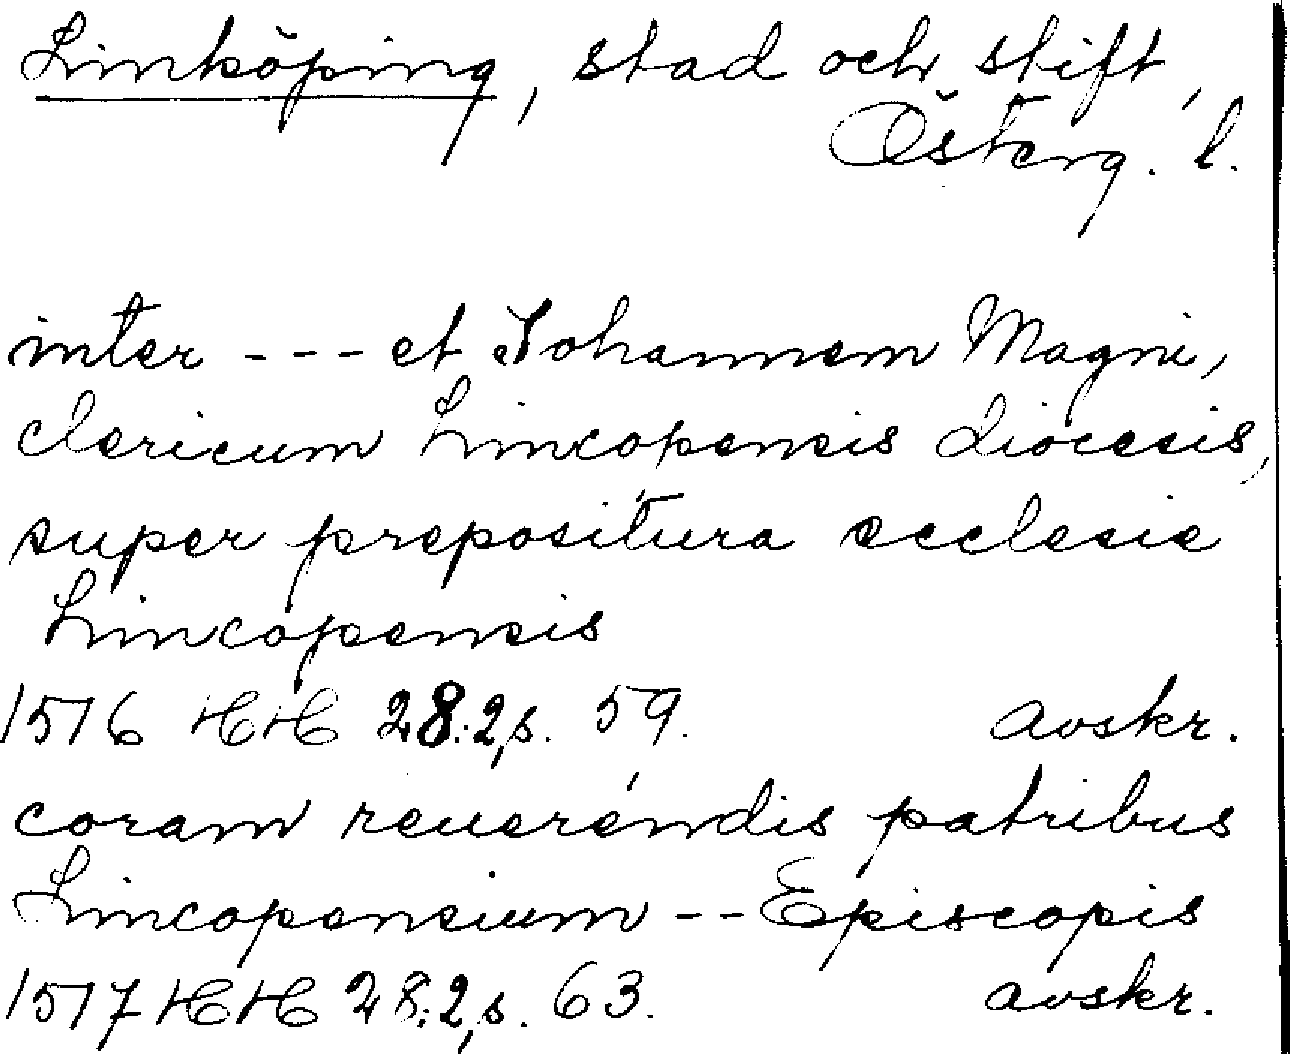 Linköping, stad och stift,
Österg. l.
inter --- et Johannem Magni,
clericum Lincopensis diocesis,
super prepositura ecclesie
Lincopensis
1516 HH 28:2, s. 59. avskr.
coram reuerendis patribus
Lincopensium -- Episcopis
1517 HH 28:2, s. 63. avskr.